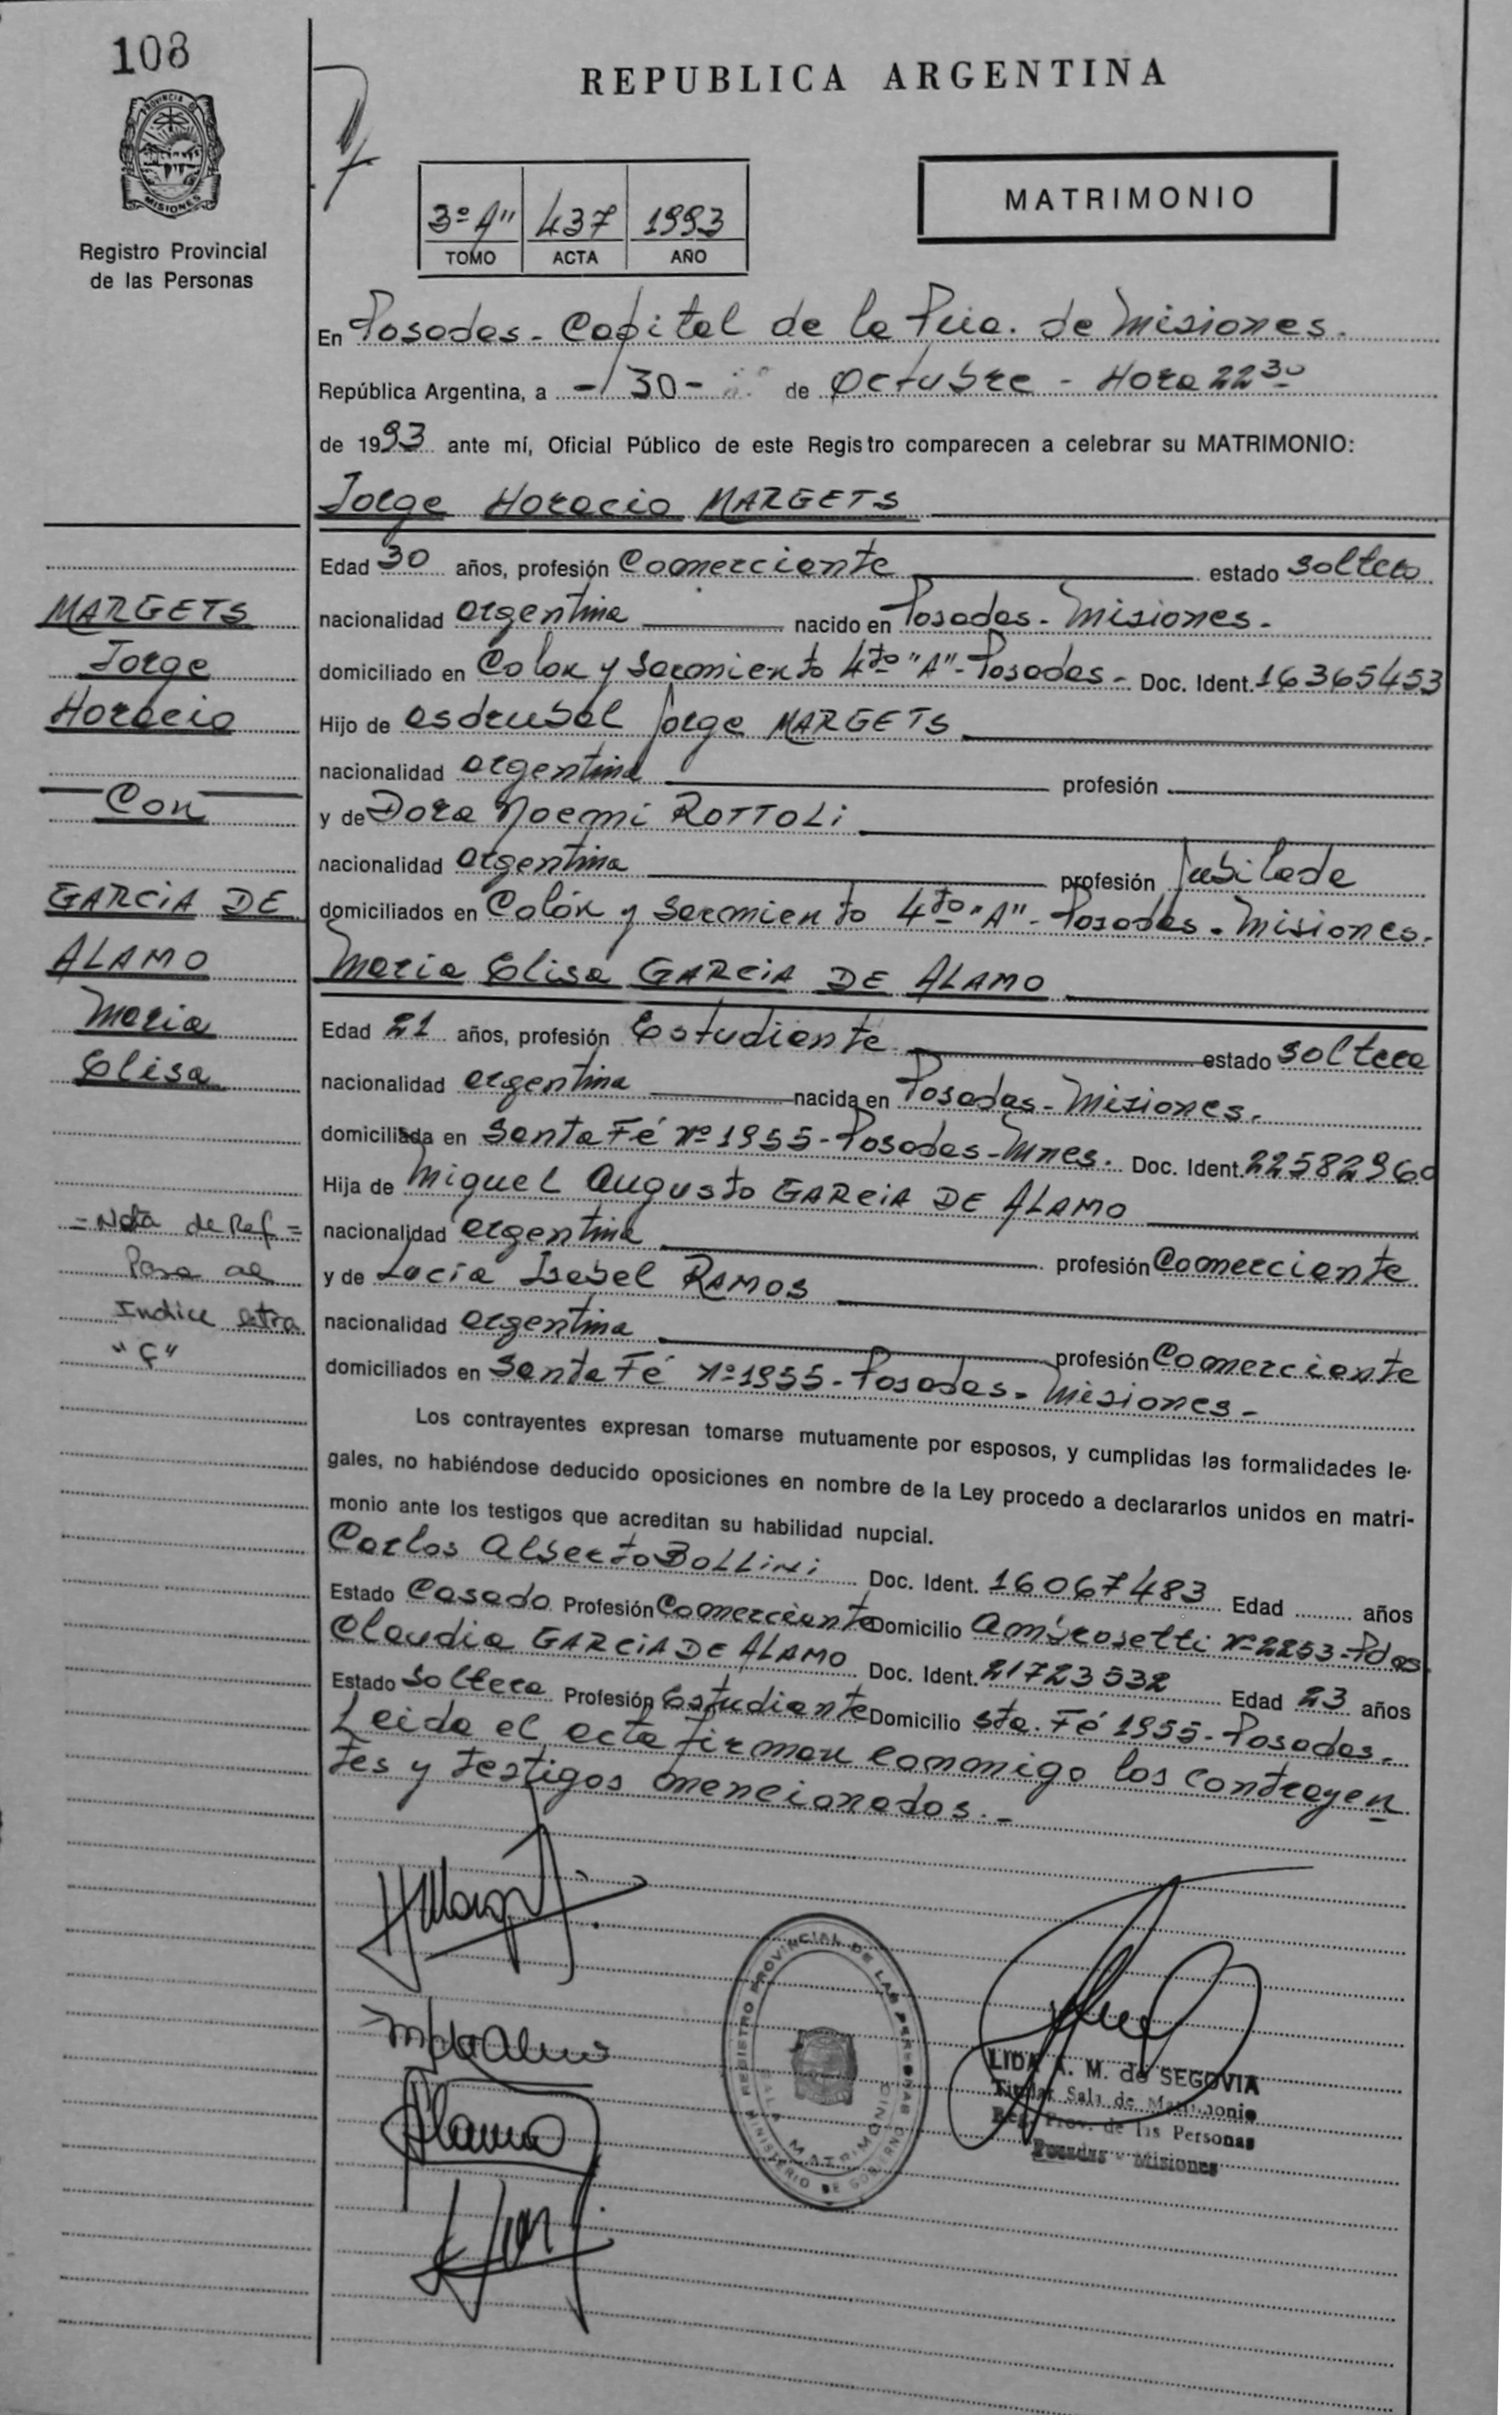 108
PROVINCIA DE
MISIONES
Registro Provincial
de las Personas
REPUBLICA ARGENTINA
3º A" 437 1993
TOMO ACTA AÑO
MATRIMONIO
En Posadas - Capital de la Pcia. de Misiones.
República Argentina, a - 30 - de Octubre - Hora 22 30
de 1993 ante mí, Oficial Público de este Registro comparecen a celebrar su MATRIMONIO:
Jorge Horacio MARGETS
Edad 30 años, profesión Comerciante estado soltero
nacionalidad argentina nacido en Posadas - Misiones.
domiciliado en Colón y Sarmiento 4to "A" - Posadas - Doc. Ident. 16365453
Hijo de Asdrubal Jorge MARGETS
nacionalidad argentina profesión
y de Dora Noemi ROTTOLI
nacionalidad argentina profesión Jubilada
domiciliados en Colón y Sarmiento 4to "A" - Posadas - Misiones.
Maria Elisa GARCIA DE ALAMO
Edad 21 años, profesión Estudiante estado soltera
nacionalidad argentina nacida en Posadas - Misiones.
domiciliada en Santa Fé Nº 1955 - Posadas - Mnes. Doc. Ident. 22582960
Hija de Miguel Augusto GARCIA DE ALAMO
nacionalidad argentina profesión Comerciante
y de Lucía Isabel RAMOS
nacionalidad argentina profesión Comerciante
domiciliados en Santa Fé Nº 1955 - Posadas - Misiones -
Los contrayentes expresan tomarse mutuamente por esposos, y cumplidas las formalidades le-
gales, no habiéndose deducido oposiciones en nombre de la Ley procedo a declararlos unidos en matri-
monio ante los testigos que acreditan su habilidad nupcial.
Carlos Alberto BOLLINI Doc. Ident. 16067483 Edad años
Estado Casado Profesión Comerciante Domicilio Ambrosetti Nº 2253 - Pdas.
Claudia GARCIA DE ALAMO Doc. Ident. 21723532 Edad 23 años
Estado Soltera Profesión Estudiante Domicilio Sta. Fé 1955 - Posadas.
Leida el acta firman conmigo los contrayen
tes y testigos mencionados. -
MARGETS
Jorge
Horacio
Con
GARCIA DE
ALAMO
Maria
Elisa
= Nota de Ref =
Pasa al
Indice letra
"G"
REGISTRO PROVINCIAL DE LAS PERSONAS
SALA MATRIMONIO
MINISTERIO DE GOBIERNO
LIDA A. M. de SEGOVIA
Titular Sala de Matrimonio
Reg. Prov. de las Personas
Posadas - Misiones